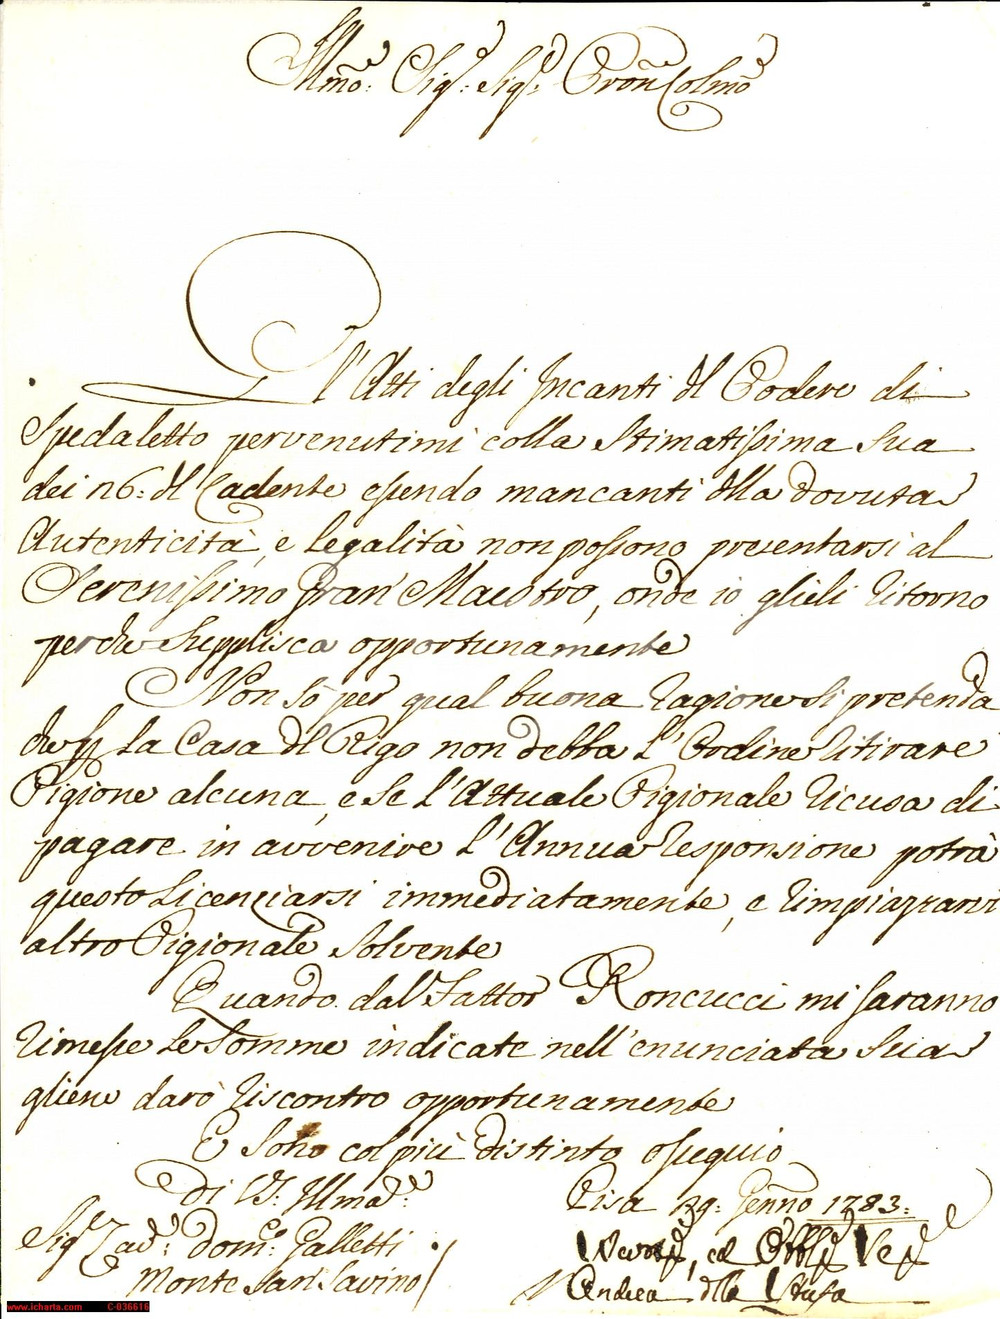 Illmo: Sig:re Sig:re Pron Colmo
Gl'Atti degli Incanti del Podere di
Spedaletto pervenutimi colla Stimatissima Sua
dei 26: del Cadente essendo mancanti della dovuta
Autenticità, e legalità non possono presentarsi al
Serenissimo Gran Maestro, onde io glieli ritorno
perche supplisca opportunamente
Non sò per qual buona ragione si pretenda
che per la Casa del Rigo non debba l'Ordine ritirare
Pigione alcuna, e se l'Attuale Pigionale ricusa di
pagare in avvenire l'Annua responsione potrà
questo licenziarsi immediatamente, e rimpiazzarvi
altro Pigionale solvente
Quando dal Fattor Roncucci mi saranno
rimesse le somme indicate nell'enunciata Sua
gliene darò riscontro opportunamente
E sono col più distinto ossequio
Di V.S. Illma:
Pisa 29: Genno 1783:
Sig:re Cav:re Dom:co Galletti
Monte San Savino
Devmo, ed Obblmo Se
Andrea della Stufa
www.icharta.com C-036616